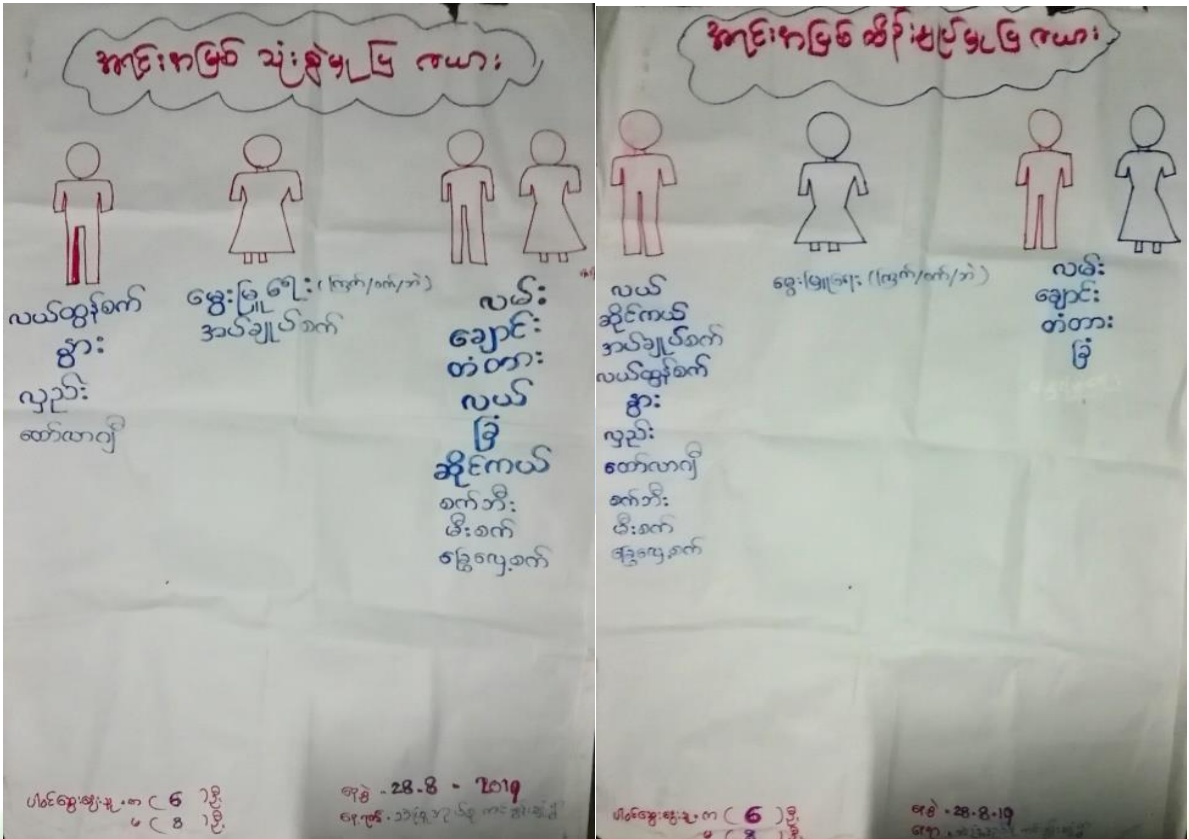 အရင်းအမြစ် သုံးစွဲမှုပြ ဇယား
လယ်ထွန်စက်
နွား
လှည်း
ထော်လာဂျီ
မွေးမြူရေး (ကြက်/ဝက်/ဘဲ)
အပ်ချုပ်စက်
လမ်း
ချောင်း
တံတား
လယ်
ခြံ
ဆိုင်ကယ်
စက်ဘီး
မီးစက်
ခြွေလှေ့စက်
ပါဝင်ဆွေးနွေးသူ - က ( 6 ) ဦး
မ ( 8 ) ဦး
နေ့စွဲ - 28-8-2019
အရင်းအမြစ် ထိန်းချုပ်မှုပြ ဇယား
လယ်
ဆိုင်ကယ်
အပ်ချုပ်စက်
လယ်ထွန်စက်
နွား
လှည်း
ထော်လာဂျီ
စက်ဘီး
မီးစက်
ခြွေလှေ့စက်
မွေးမြူရေး (ကြက်/ဝက်/ဘဲ)
လမ်း
ချောင်း
တံတား
ခြံ
ပါဝင်ဆွေးနွေးသူ - က ( 6 ) ဦး
မ ( 8 ) ဦး
နေ့စွဲ - 28-8-19